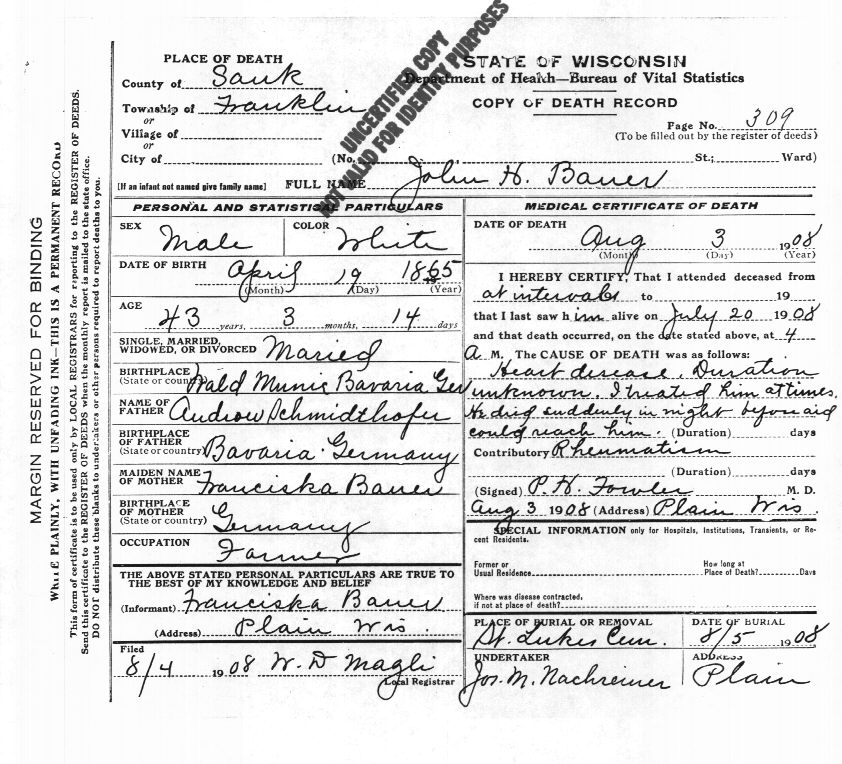 MARGIN RESERVED FOR BINDING
WRITE PLAINLY, WITH UNFADING INK—THIS IS A PERMANENT RECORD
This form of certificate is to be used only by LOCAL REGISTRARS for reporting to the REGISTER OF DEEDS.
Send this certificate to the REGISTER OF DEEDS when the monthly report is mailed to the state office.
DO NOT distribute these blanks to undertakers or other persons required to report deaths to you.
UNCERTIFIED COPY
NOT VALID FOR IDENTITY PURPOSES
PLACE OF DEATH
County of Sauk
Township of Franklin
or
Village of
or
City of
STATE OF WISCONSIN
Department of Health—Bureau of Vital Statistics
COPY OF DEATH RECORD
Page No. 309
(To be filled out by the register of deeds)
(No. St.; Ward)
[If an infant not named give family name] FULL NAME John H. Bauer
PERSONAL AND STATISTICAL PARTICULARS
SEX Male COLOR White
DATE OF BIRTH April 19 1865
(Month) (Day) (Year)
AGE
43 years, 3 months, 14 days
SINGLE, MARRIED,
WIDOWED, OR DIVORCED Maried
BIRTHPLACE
(State or country) Wald Munic Bavaria Ger
NAME OF
FATHER Andrew Schmidthofer
BIRTHPLACE
OF FATHER
(State or country) Bavaria Germany
MAIDEN NAME
OF MOTHER Franciska Bauer
BIRTHPLACE
OF MOTHER
(State or country) Germany
OCCUPATION Farmer
THE ABOVE STATED PERSONAL PARTICULARS ARE TRUE TO
THE BEST OF MY KNOWLEDGE AND BELIEF
(Informant) Franciska Bauer
(Address) Plain Wis
Filed
8/4 1908 W. D. Magli
Local Registrar
MEDICAL CERTIFICATE OF DEATH
DATE OF DEATH
Aug 3 1908
(Month) (Day) (Year)
I HEREBY CERTIFY, That I attended deceased from
at intervals to 19
that I last saw him alive on July 20 1908
and that death occurred, on the date stated above, at 4
A M. The CAUSE OF DEATH was as follows:
Heart disease. Duration
unknown. I treated him at times.
He died suddenly in night before aid
could reach him. (Duration) days
Contributory Rheumatism
(Duration) days
(Signed) P. H. Fowler M. D.
Aug 3 1908 (Address) Plain Wis.
SPECIAL INFORMATION only for Hospitals, Institutions, Transients, or Re-
cent Residents.
Former or
Usual Residence
How long at
Place of Death? Days
Where was disease contracted,
if not at place of death?
PLACE OF BURIAL OR REMOVAL
St. Lukes Cem.
DATE OF BURIAL
8/5 1908
UNDERTAKER
Jos. M. Nachreiner
ADDRESS
Plain